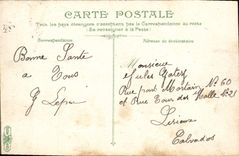 CARTE POSTALE
Tous les pays étrangers n'acceptent pas la Correspondance au recto
(Se renseigner à la Poste)
Correspondance
Adresse du destinataire
Bonne Santé
à Tous
G
Monsieur
Jules
Rue pont Mortain N° 60
et Rue Tour des N° 21
Lisieux
Calvados